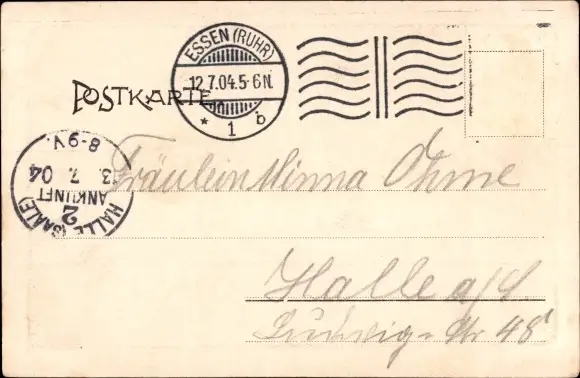 ESSEN (RUHR)
12.7.04.5-6N.
* 1 b
POSTKARTE
8-9V.
13. 7. 04
ANKUNFT
2
HALLE (SAALE)
Fräulein Minna Ohme
Halle a/S.
Ludwig-Str 48